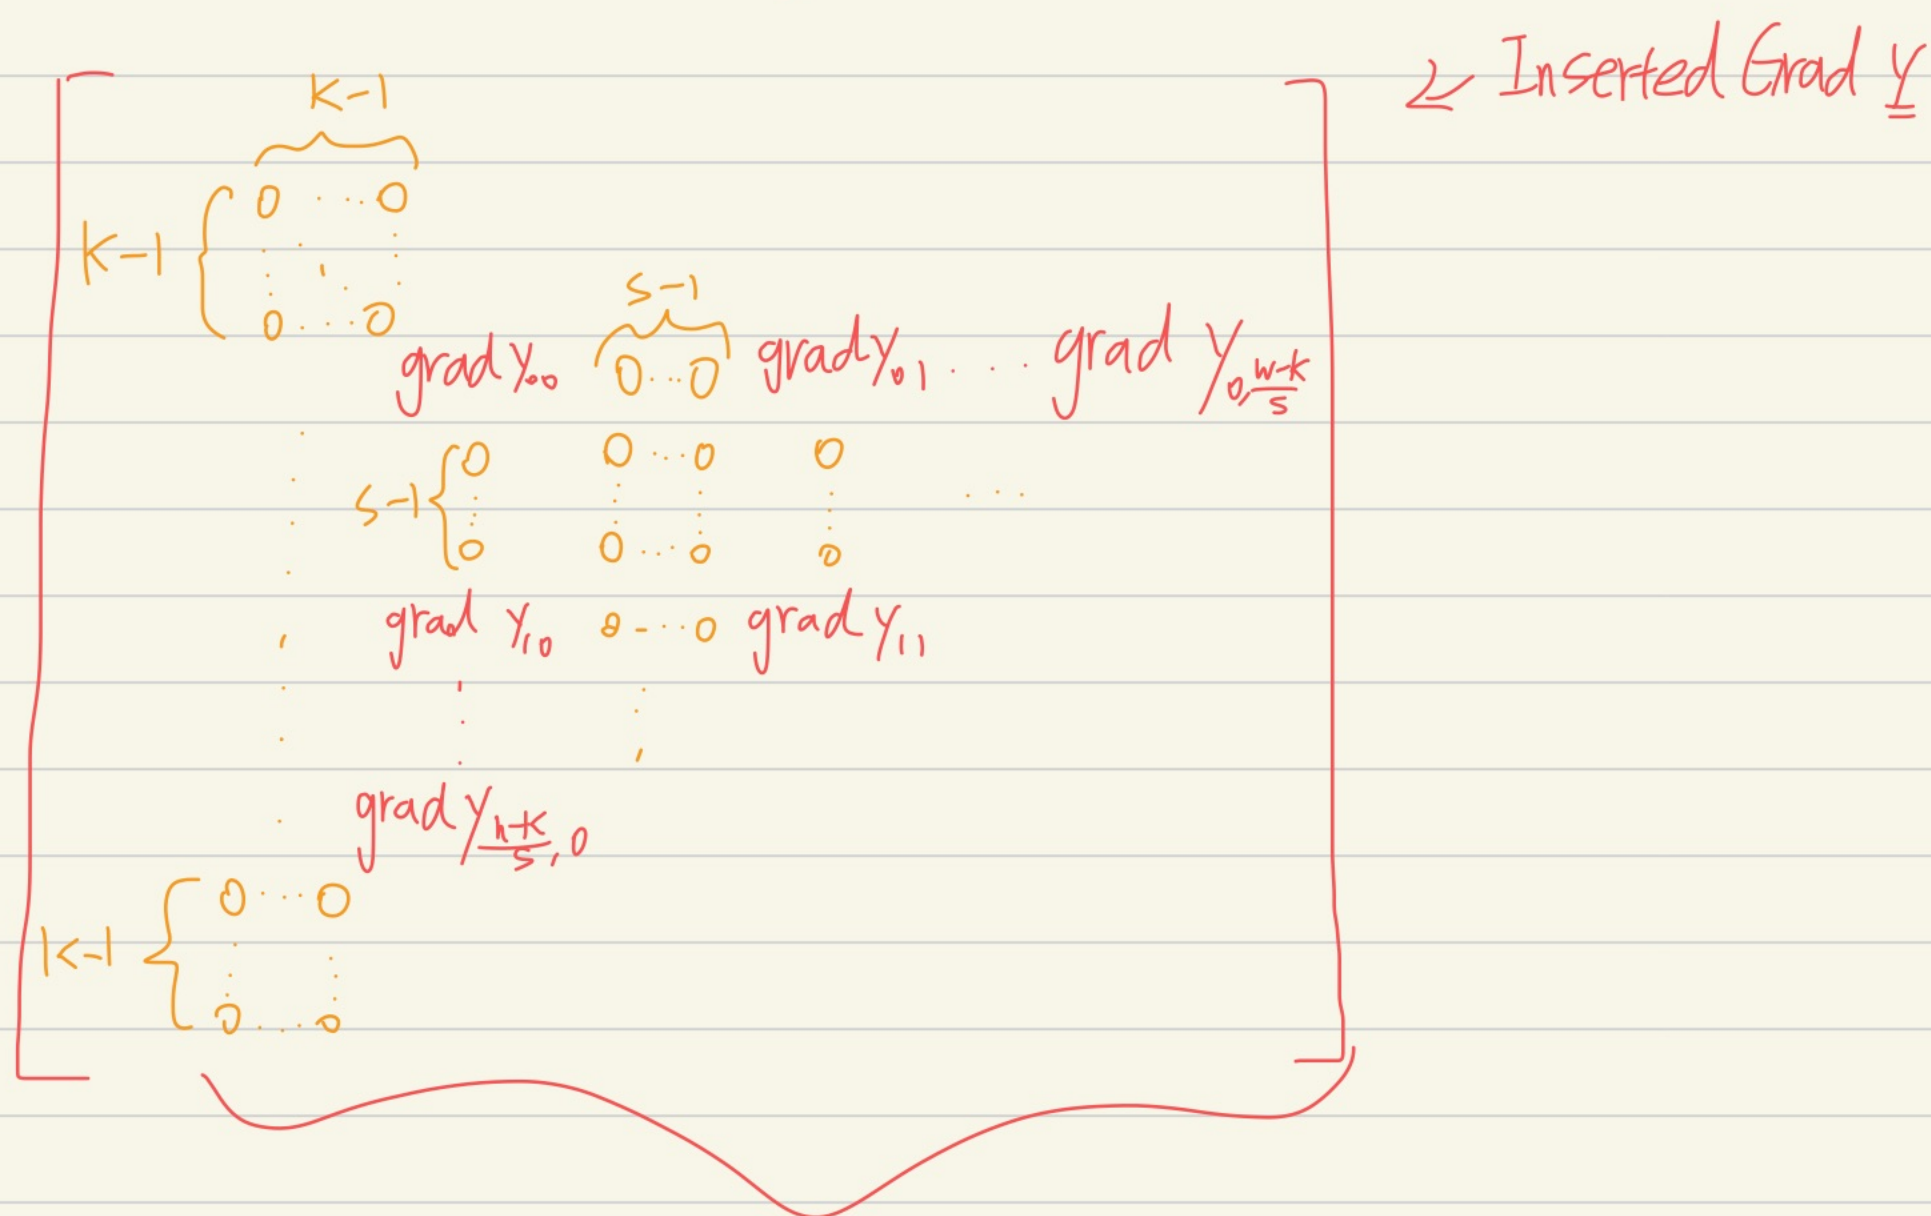 Inserted Grad Y
K-1
0 ... 0
K-1
0 ... 0
S-1
grad y₀₀ 0 ... 0 grad y₀₁ ... grad y₀,(w-k)/s
0 0 ... 0 0
S-1 ...
0 0 ... 0 0
grad y₁₀ 0 - ... 0 grad y₁₁
grad y(h-k)/s,0
0 ... 0
K-1
0 ... 0